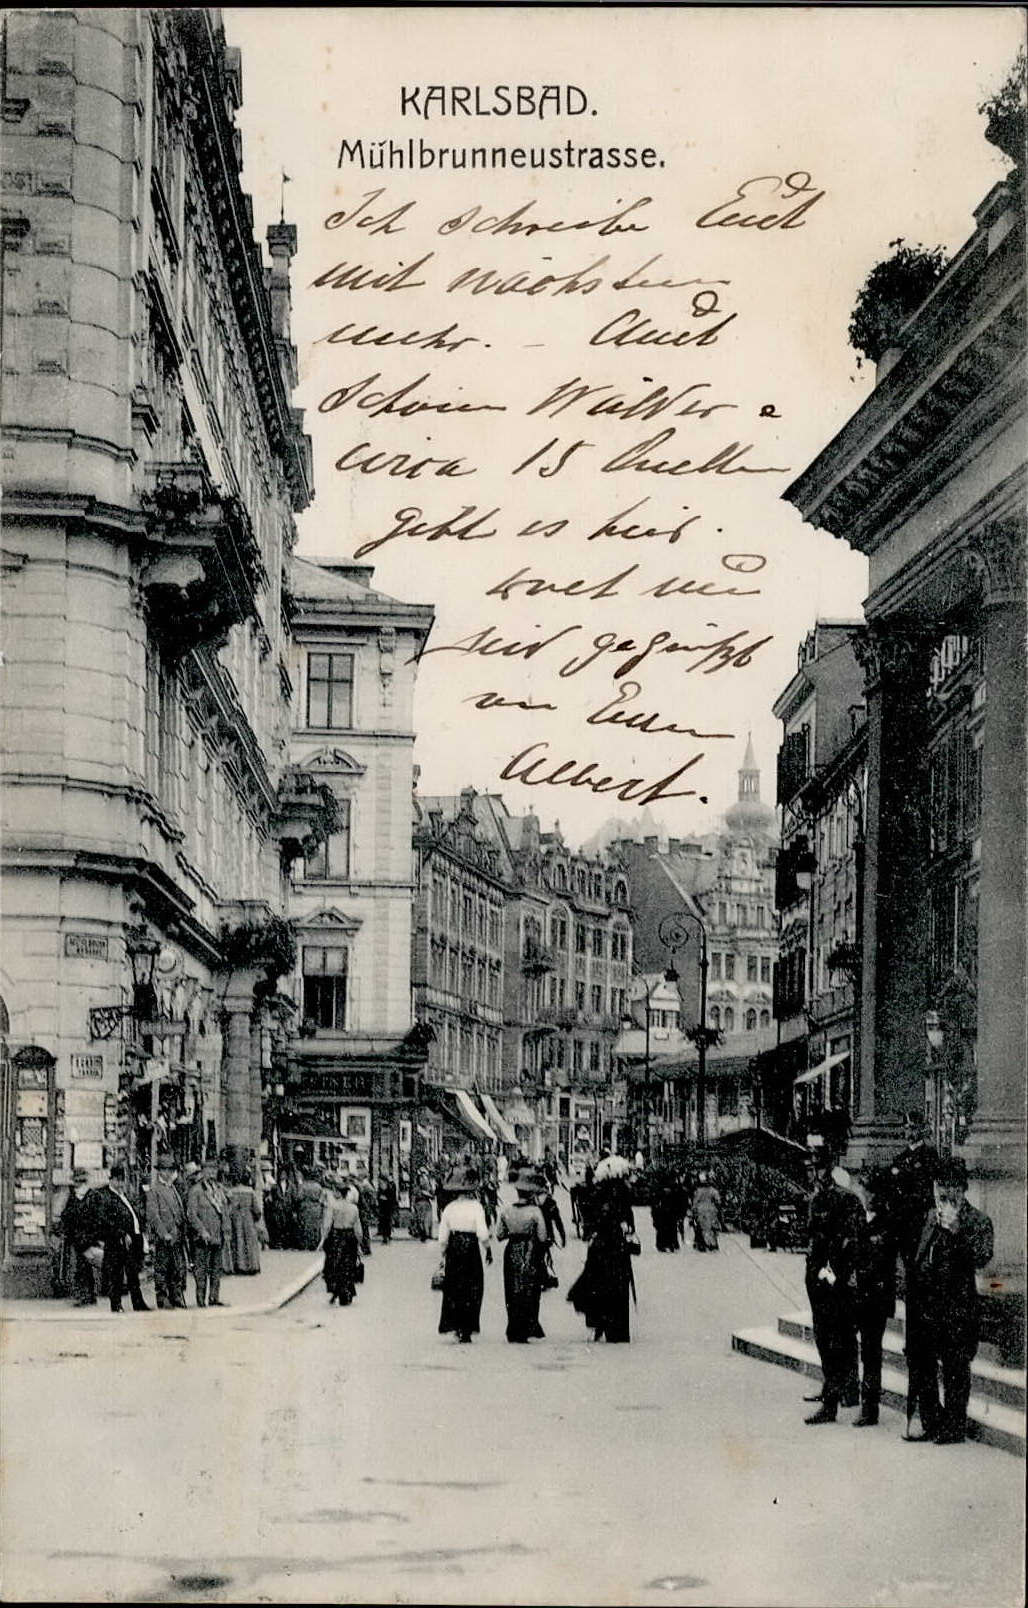 KARLSBAD.
Mühlbrunneustrasse.
Ich schreibe Euch
mit nächstem
mehr. – Auch
schöne Wälder &
circa 15 Quellen
gibt es hier.
seid gegrüßt
von Euerm
Albert.